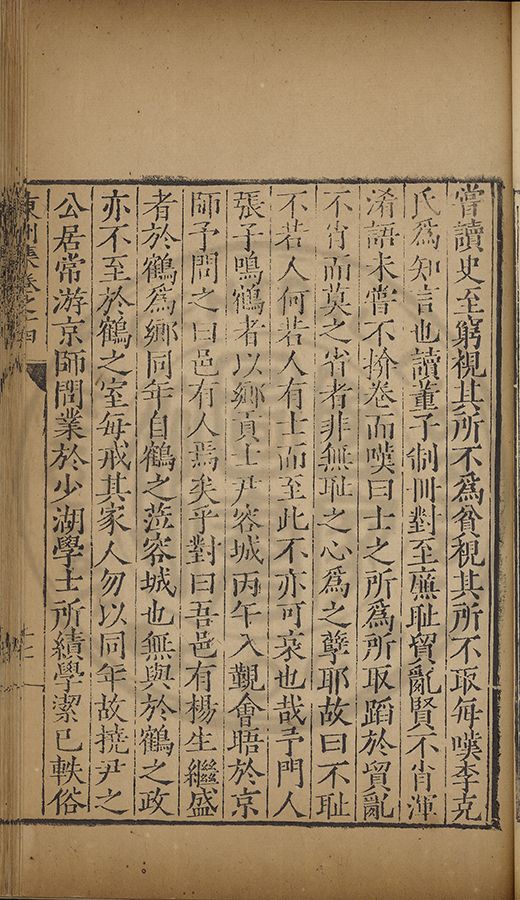 嘗讀史至窮視其所不爲貧視其所不取每嘆李克
氏爲知言也讀董子制冊對至廉耻貿亂賢不肖渾
淆語未嘗不掩卷而嘆曰士之所爲所取蹈於貿亂
不肖而莫之省者非無耻之心爲之孽耶故曰不耻
不若人何若人有士而至此不亦可哀也哉予門人
張子鳴鶴者以鄉貢士尹容城丙午入覲會晤於京
師予問之曰邑有人焉矣乎對曰吾邑有楊生繼盛
者於鶴爲鄉同年自鶴之蒞容城也無與於鶴之政
亦不至於鶴之室每戒其家人勿以同年故撓尹之
公居常游京師問業於少湖學士所績學潔已軼俗
東洲集卷之十四